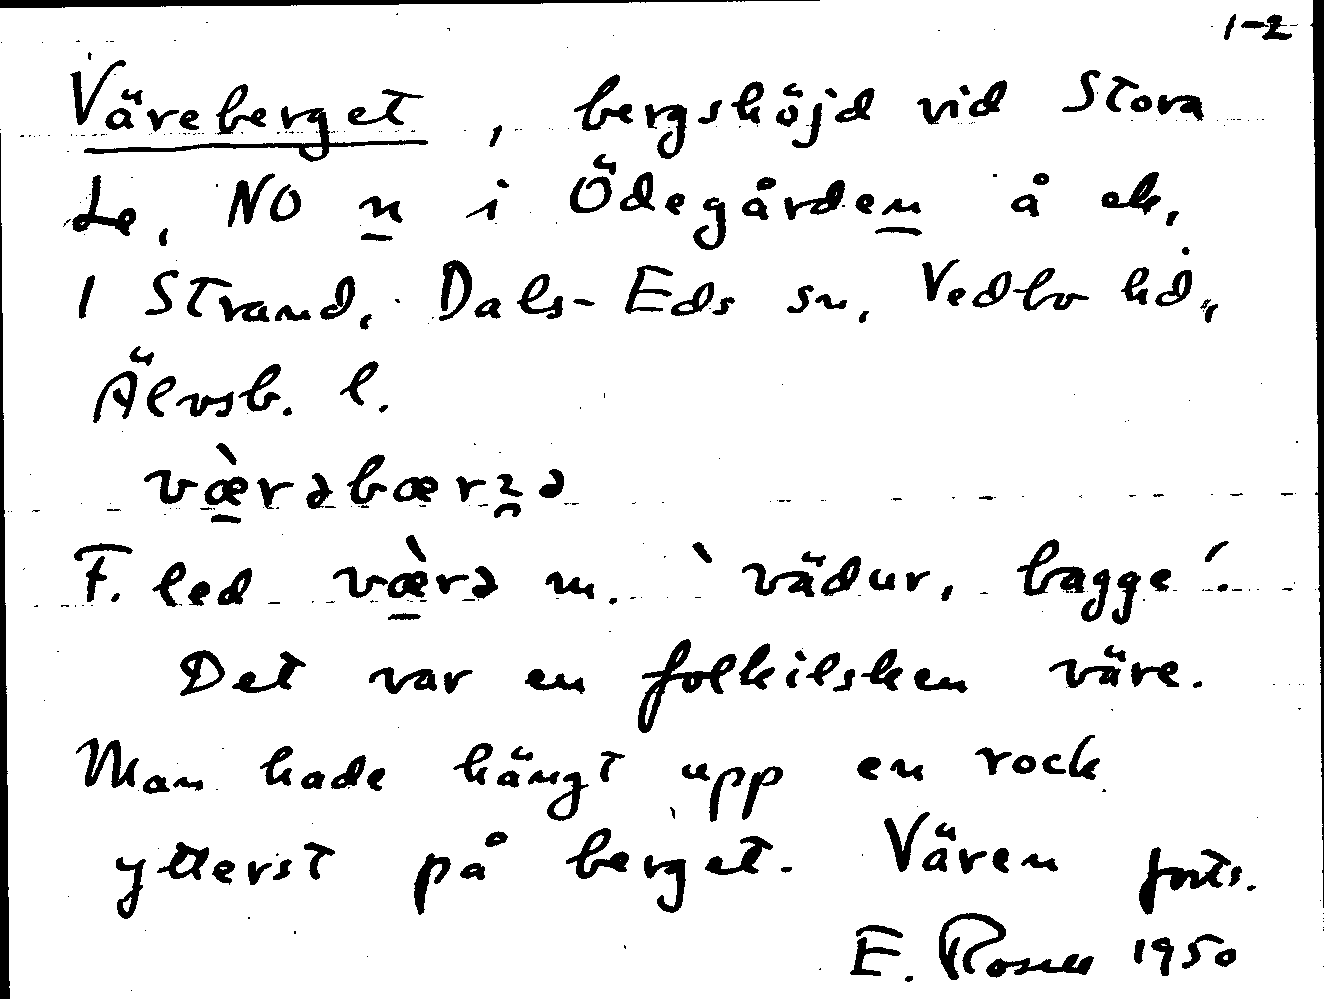 1-2
Väreberget, bergshöjd vid Stora
Le, NO n i Ödegården å ek,
1 Strand, Dals-Eds sn, Vedbo hd,
Älvsb. l.
væ̀rəbærʒə
F. led væ̀rə m. `vädur, bagge´.
Det var en folkilsken väre.
Man hade hängt upp en rock
ytterst på berget. Vären forts.
E. Rosell 1950